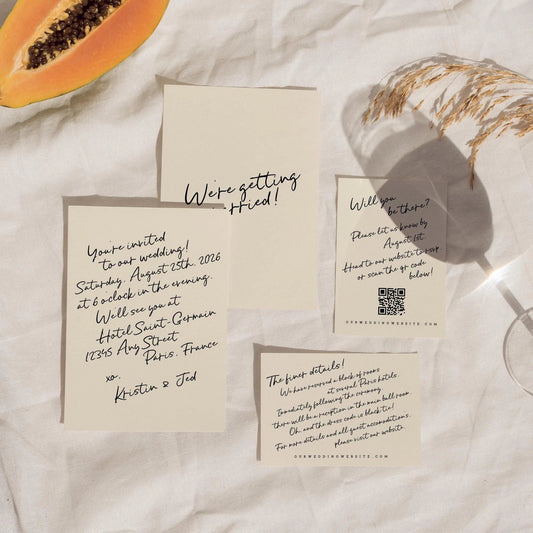 We're getting
rried!
You're invited
to our wedding!
Saturday, August 25th, 2026
at 6 o'clock in the evening.
We'll see you at
Hotel Saint-Germain
12345 Any Street
Paris, France
xo,
Kristin & Jed
Will you
be there?
Please let us know by
August 1st.
Head to our website to rsvp
or scan the qr code
below!
OURWEDDINGWEBSITE.COM
The finer details!
We have reserved a block of rooms
at several Paris hotels.
Immediately following the ceremony
there will be a reception in the main ball room.
Oh, and the dress code is black tie!
For more details and all guest accomodations,
please visit our website.
OURWEDDINGWEBSITE.COM